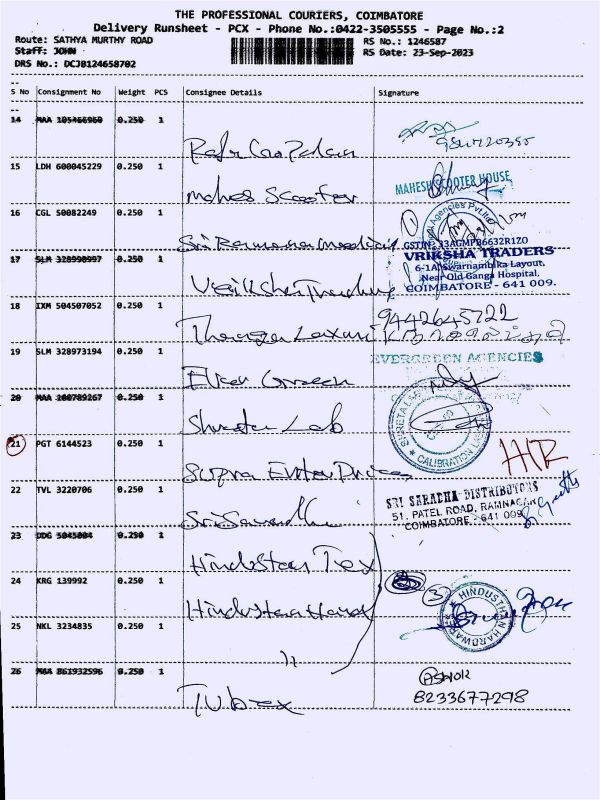 THE PROFESSIONAL COURIERS, COIMBATORE
Delivery Runsheet - PCX - Phone No.:0422-3505555 - Page No.:2
Route: SATHYA MURTHY ROAD RS No.: 1246587
Staff: JOHN RS Date: 23-Sep-2023
DRS No.: DCJ0124658702
S No Consignment No Weight PCS Consignee Details Signature
14 MAA 105466960 0.250 1
15 LDH 600045229 0.250 1 Mahes Scooter MAHESH SCOOTER HOUSE
16 CGL 50082249 0.250 1 Agencies Pvt.Ltd
GSTIN: 33AGMPB6632R1Z0
17 SLM 328990997 0.250 1 VRIKSHA TRADERS
6-1A, Swarnambika Layout,
Near Old Ganga Hospital,
COIMBATORE - 641 009.
18 IXM 504507052 0.250 1 Thanga Laxmi 9442645722
19 SLM 328973194 0.250 1 Ever Green EVERGREEN AGENCIES
20 MAA 200789267 0.250 1 Shreeta Lab CALIBRATION
21 PGT 6144523 0.250 1 Supra Enter Prices HIR
22 TVL 3220706 0.250 1 Sri Saradha SRI SARADHA DISTRIBUTORS
51, PATEL ROAD, RAMNAGAR
COIMBATORE - 641 009
23 DDG 5045004 0.250 1 Hindustan Tex
24 KRG 139992 0.250 1 Hindustan Hard 3 HINDUSTHAN HARDWARE
25 NKL 3234835 0.250 1 "
26 MAA 861932596 0.250 1 Tubex Ashok
8233677298